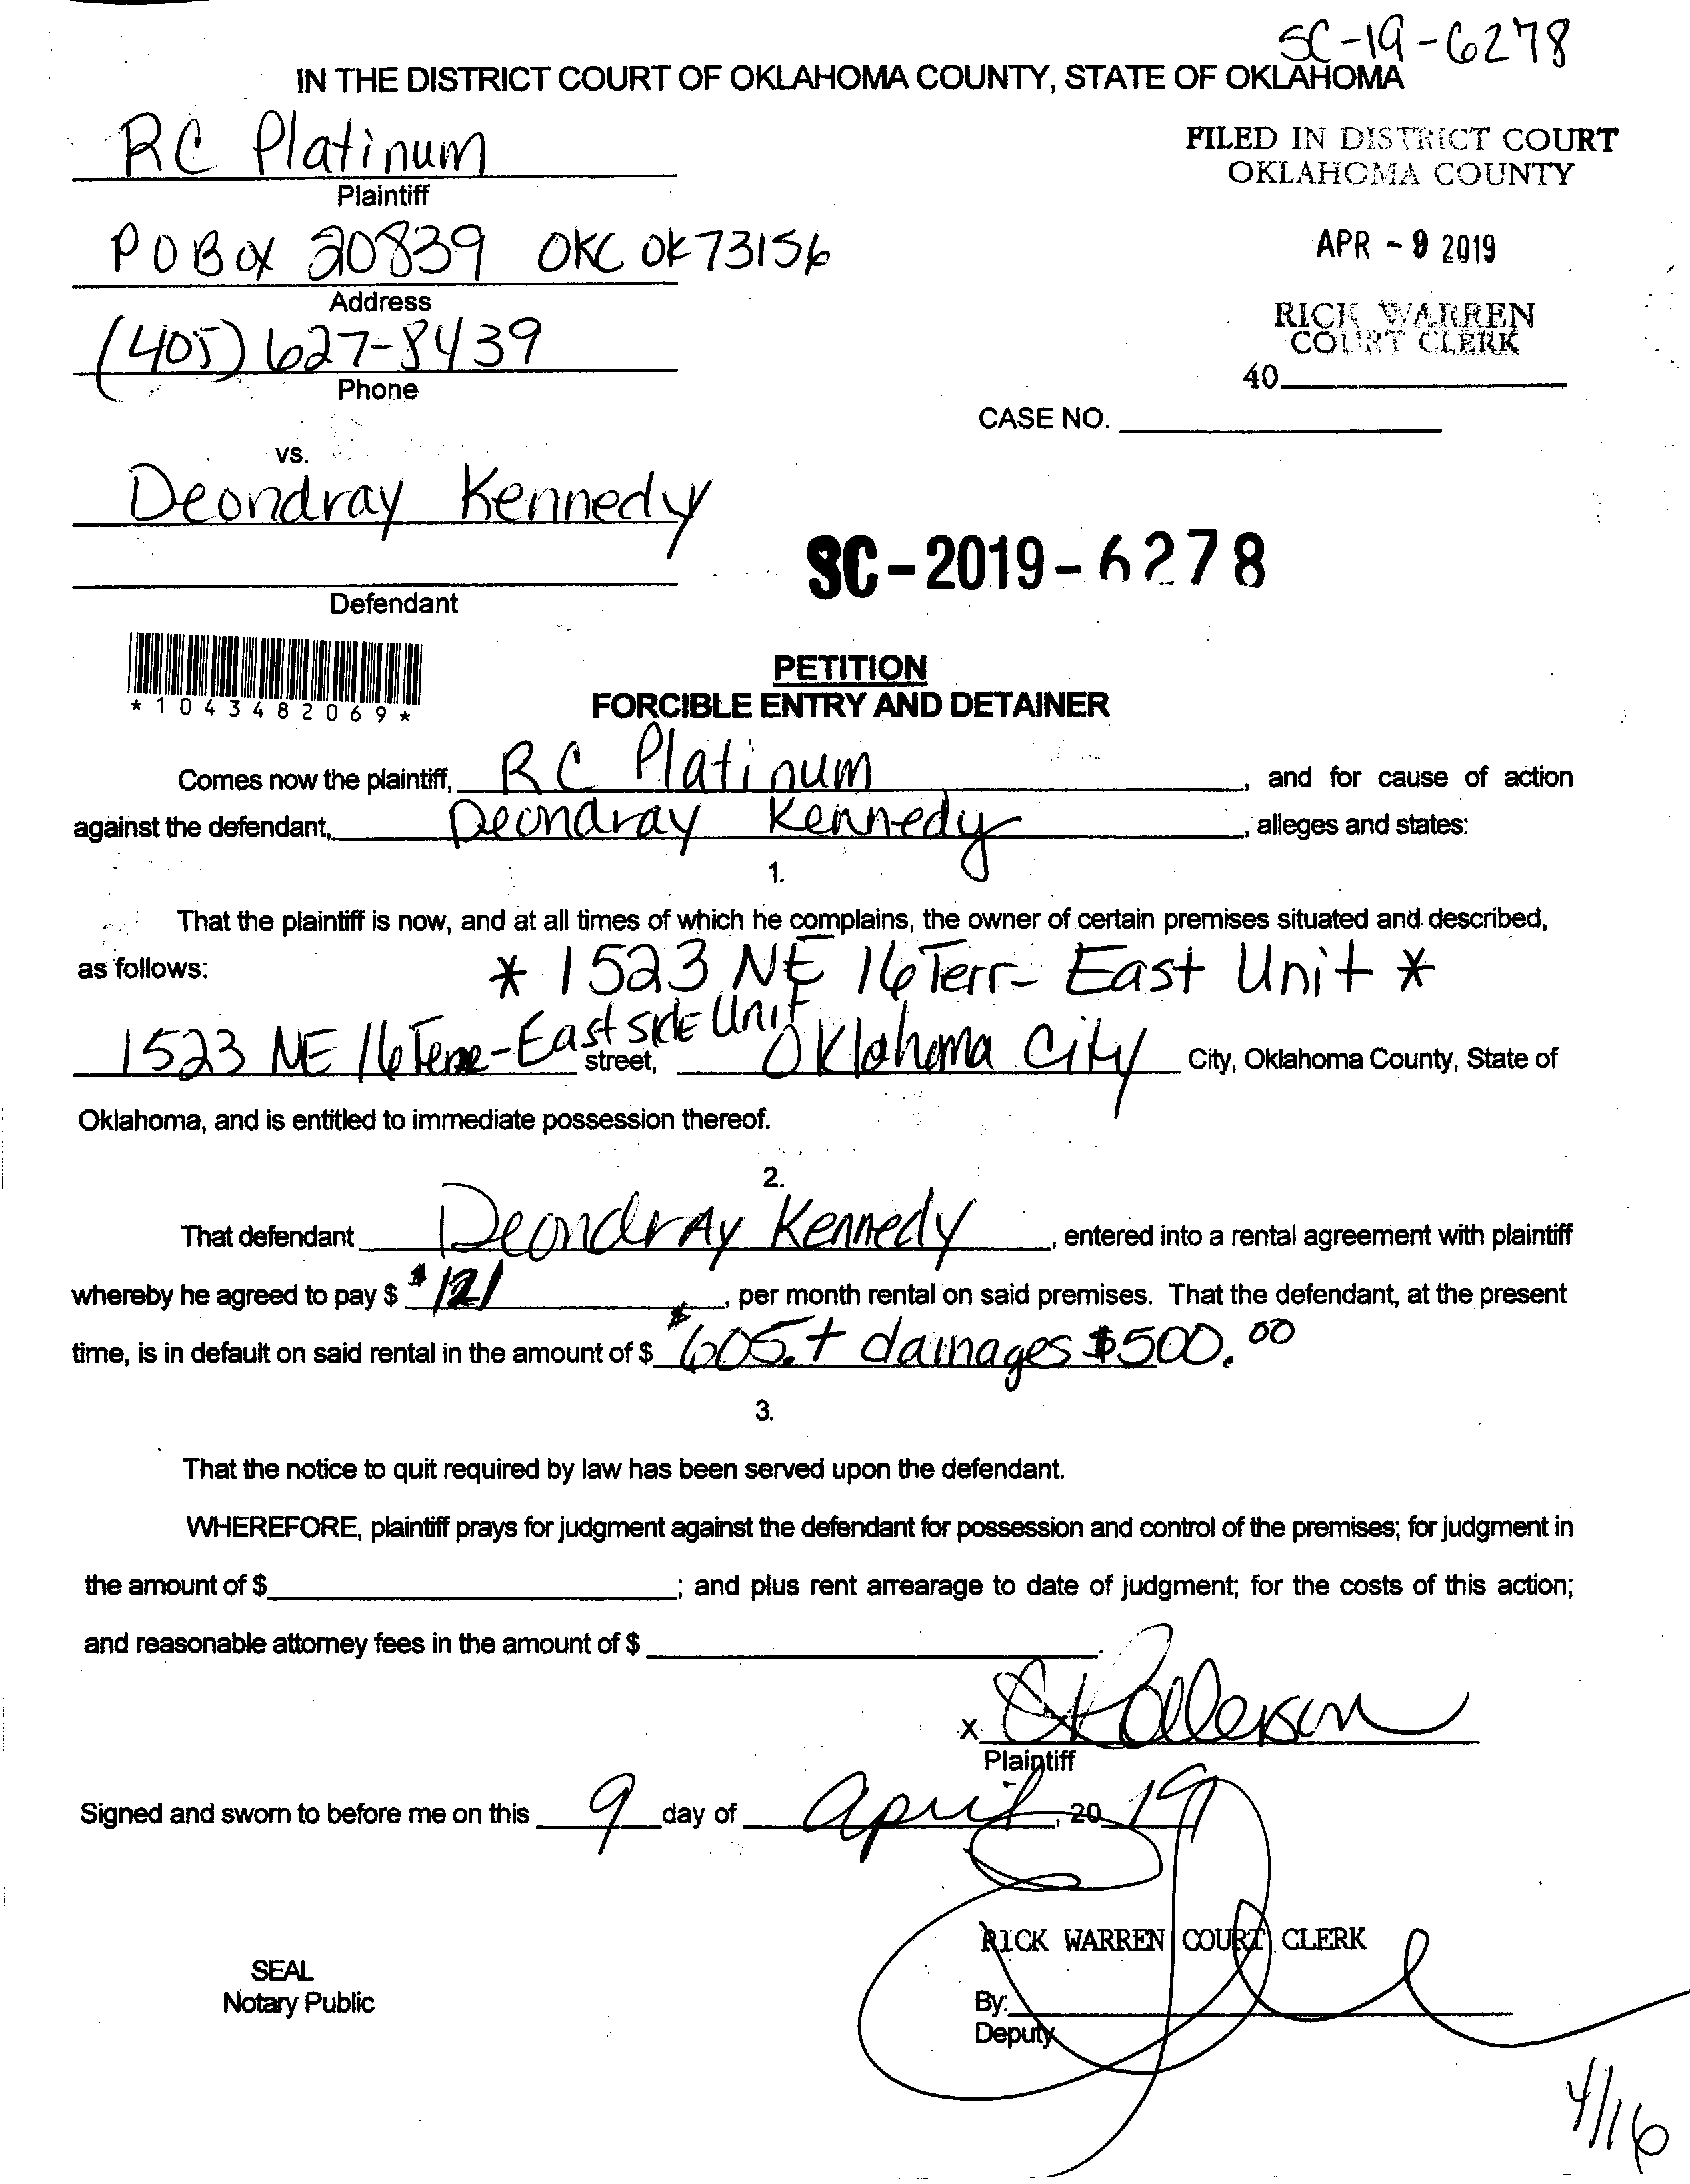 SC-19-6278
IN THE DISTRICT COURT OF OKLAHOMA COUNTY, STATE OF OKLAHOMA
RC Platinum
Plaintiff
FILED IN DISTRICT COURT
OKLAHOMA COUNTY
PO Box 20839 OKC OK 73156
Address
APR - 9 2019
(405) 627-8439
Phone
RICK WARREN
COURT CLERK
40
CASE NO.
vs.
Deondray Kennedy
Defendant
SC-2019-6278
*1043482069*
PETITION
FORCIBLE ENTRY AND DETAINER
Comes now the plaintiff, RC Platinum, and for cause of action
against the defendant, Deondray Kennedy, alleges and states:
1.
That the plaintiff is now, and at all times of which he complains, the owner of certain premises situated and described,
as follows: * 1523 NE 16 Terr- East Unit *
1523 NE 16 Terre-East side Unit street, Oklahoma City City, Oklahoma County, State of
Oklahoma, and is entitled to immediate possession thereof.
2.
That defendant DeondrAy Kennedy, entered into a rental agreement with plaintiff
whereby he agreed to pay $ $121, per month rental on said premises. That the defendant, at the present
time, is in default on said rental in the amount of $ $605.+ damages $500.00
3.
That the notice to quit required by law has been served upon the defendant.
WHEREFORE, plaintiff prays for judgment against the defendant for possession and control of the premises; for judgment in
the amount of $ ; and plus rent arrearage to date of judgment; for the costs of this action;
and reasonable attorney fees in the amount of $ .
x
Plaintiff
Signed and sworn to before me on this 9 day of April, 20 19
RICK WARREN COURT CLERK
SEAL
Notary Public
By:
Deputy
4/16